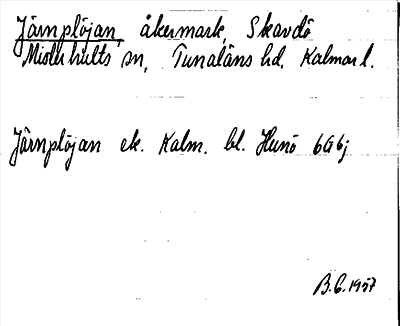 Järnplöjan, åkermark, Skavdö
Misterhults sn, Tunaläns hd. Kalmar l.
Järnplöjan ek. Kalm. bl. Hunö 6G6j
B.C. 1957